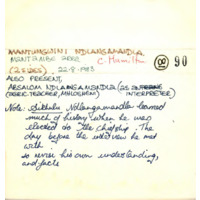 NDLANGAMANDLA
MANTIMBE AREA
C. Hamilton
(2 SIDES) 22-8-1983
(81) 90
ALSO PRESENT,
ABSALOM NDLANGAMANDLA (AS
(AGRIC. TEACHER, MHLOSHENI) INTERPRETER)
Note: Ndlangamandla learned
much of history when he was
elected to the chieftship. The
day before the interview he
met with
to revise his own understanding,
and facts